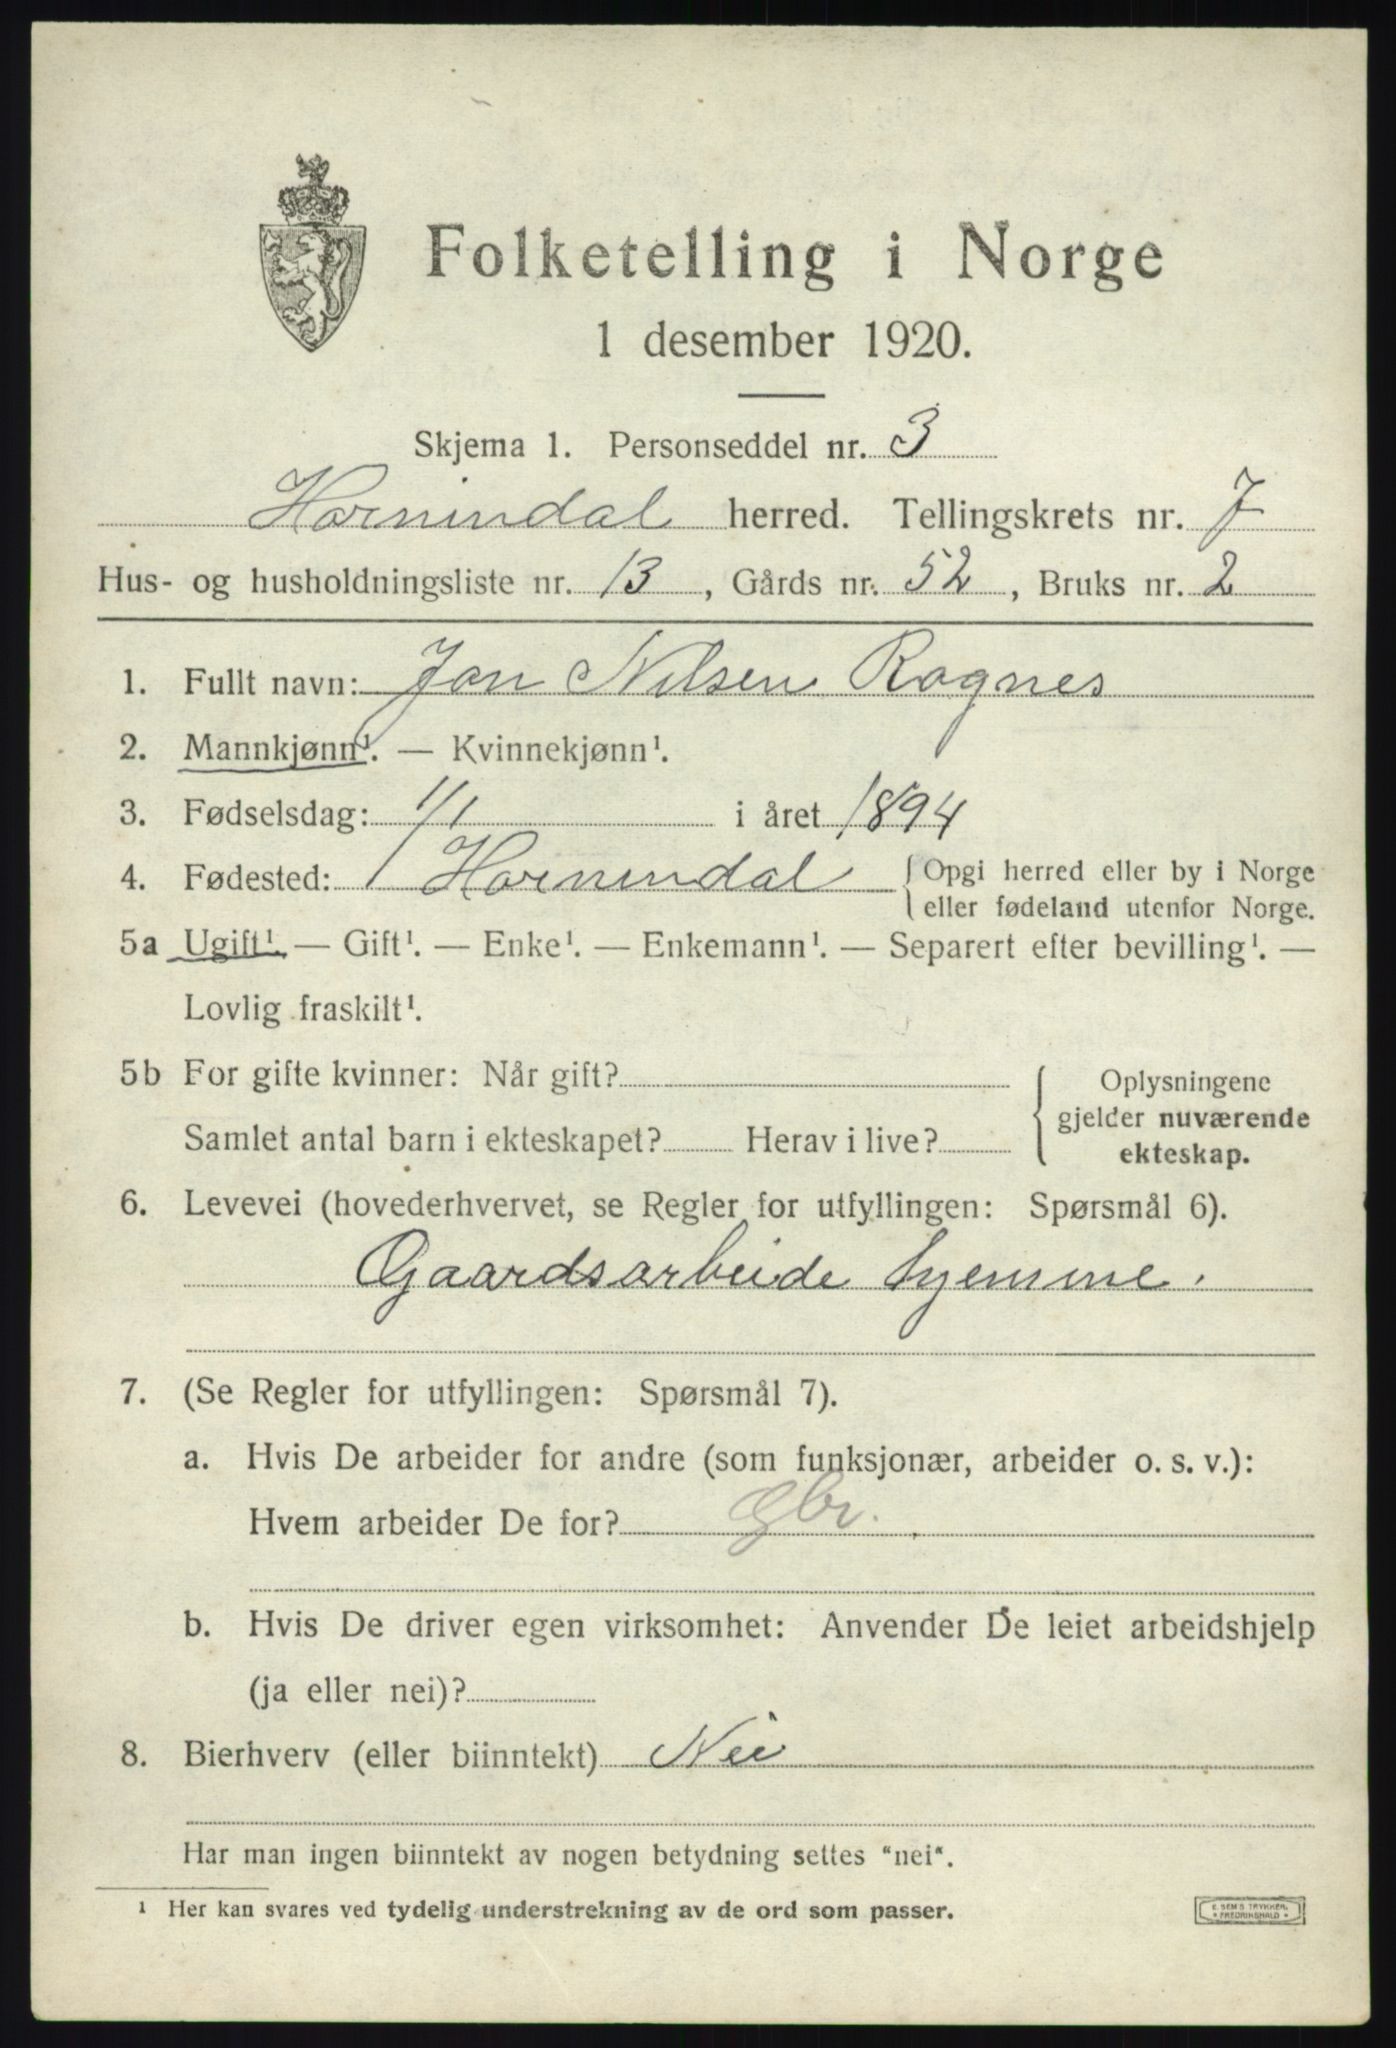 Folketelling i Norge
1 desember 1920.
Skjema 1. Personseddel nr. 3
Hornindal herred. Tellingskrets nr. 7
Hus- og husholdningsliste nr. 13, Gårds nr. 52, Bruks nr. 2
1. Fullt navn: Jon Nilsen Rognes
2. Mannkjønn¹. — Kvinnekjønn¹.
3. Fødselsdag: 1/1 i året 1894
4. Fødested: Hornindal { Opgi herred eller by i Norge
eller fødeland utenfor Norge.
5a Ugift¹. — Gift¹. — Enke¹. — Enkemann¹. — Separert efter bevilling¹. —
Lovlig fraskilt¹.
5b For gifte kvinner: Når gift?
Samlet antal barn i ekteskapet? Herav i live?
{ Oplysningene
gjelder nuværende
ekteskap.
6. Levevei (hovederhvervet, se Regler for utfyllingen: Spørsmål 6).
Gaardsarbeide hjemme.
7. (Se Regler for utfyllingen: Spørsmål 7).
a. Hvis De arbeider for andre (som funksjonær, arbeider o. s. v.):
Hvem arbeider De for? Gbr.
b. Hvis De driver egen virksomhet: Anvender De leiet arbeidshjelp
(ja eller nei)?
8. Bierhverv (eller biinntekt) Nei
Har man ingen biinntekt av nogen betydning settes "nei".
¹ Her kan svares ved tydelig understrekning av de ord som passer.
E. SEM'S TRYKKERI
• FREDRIKSHALD •